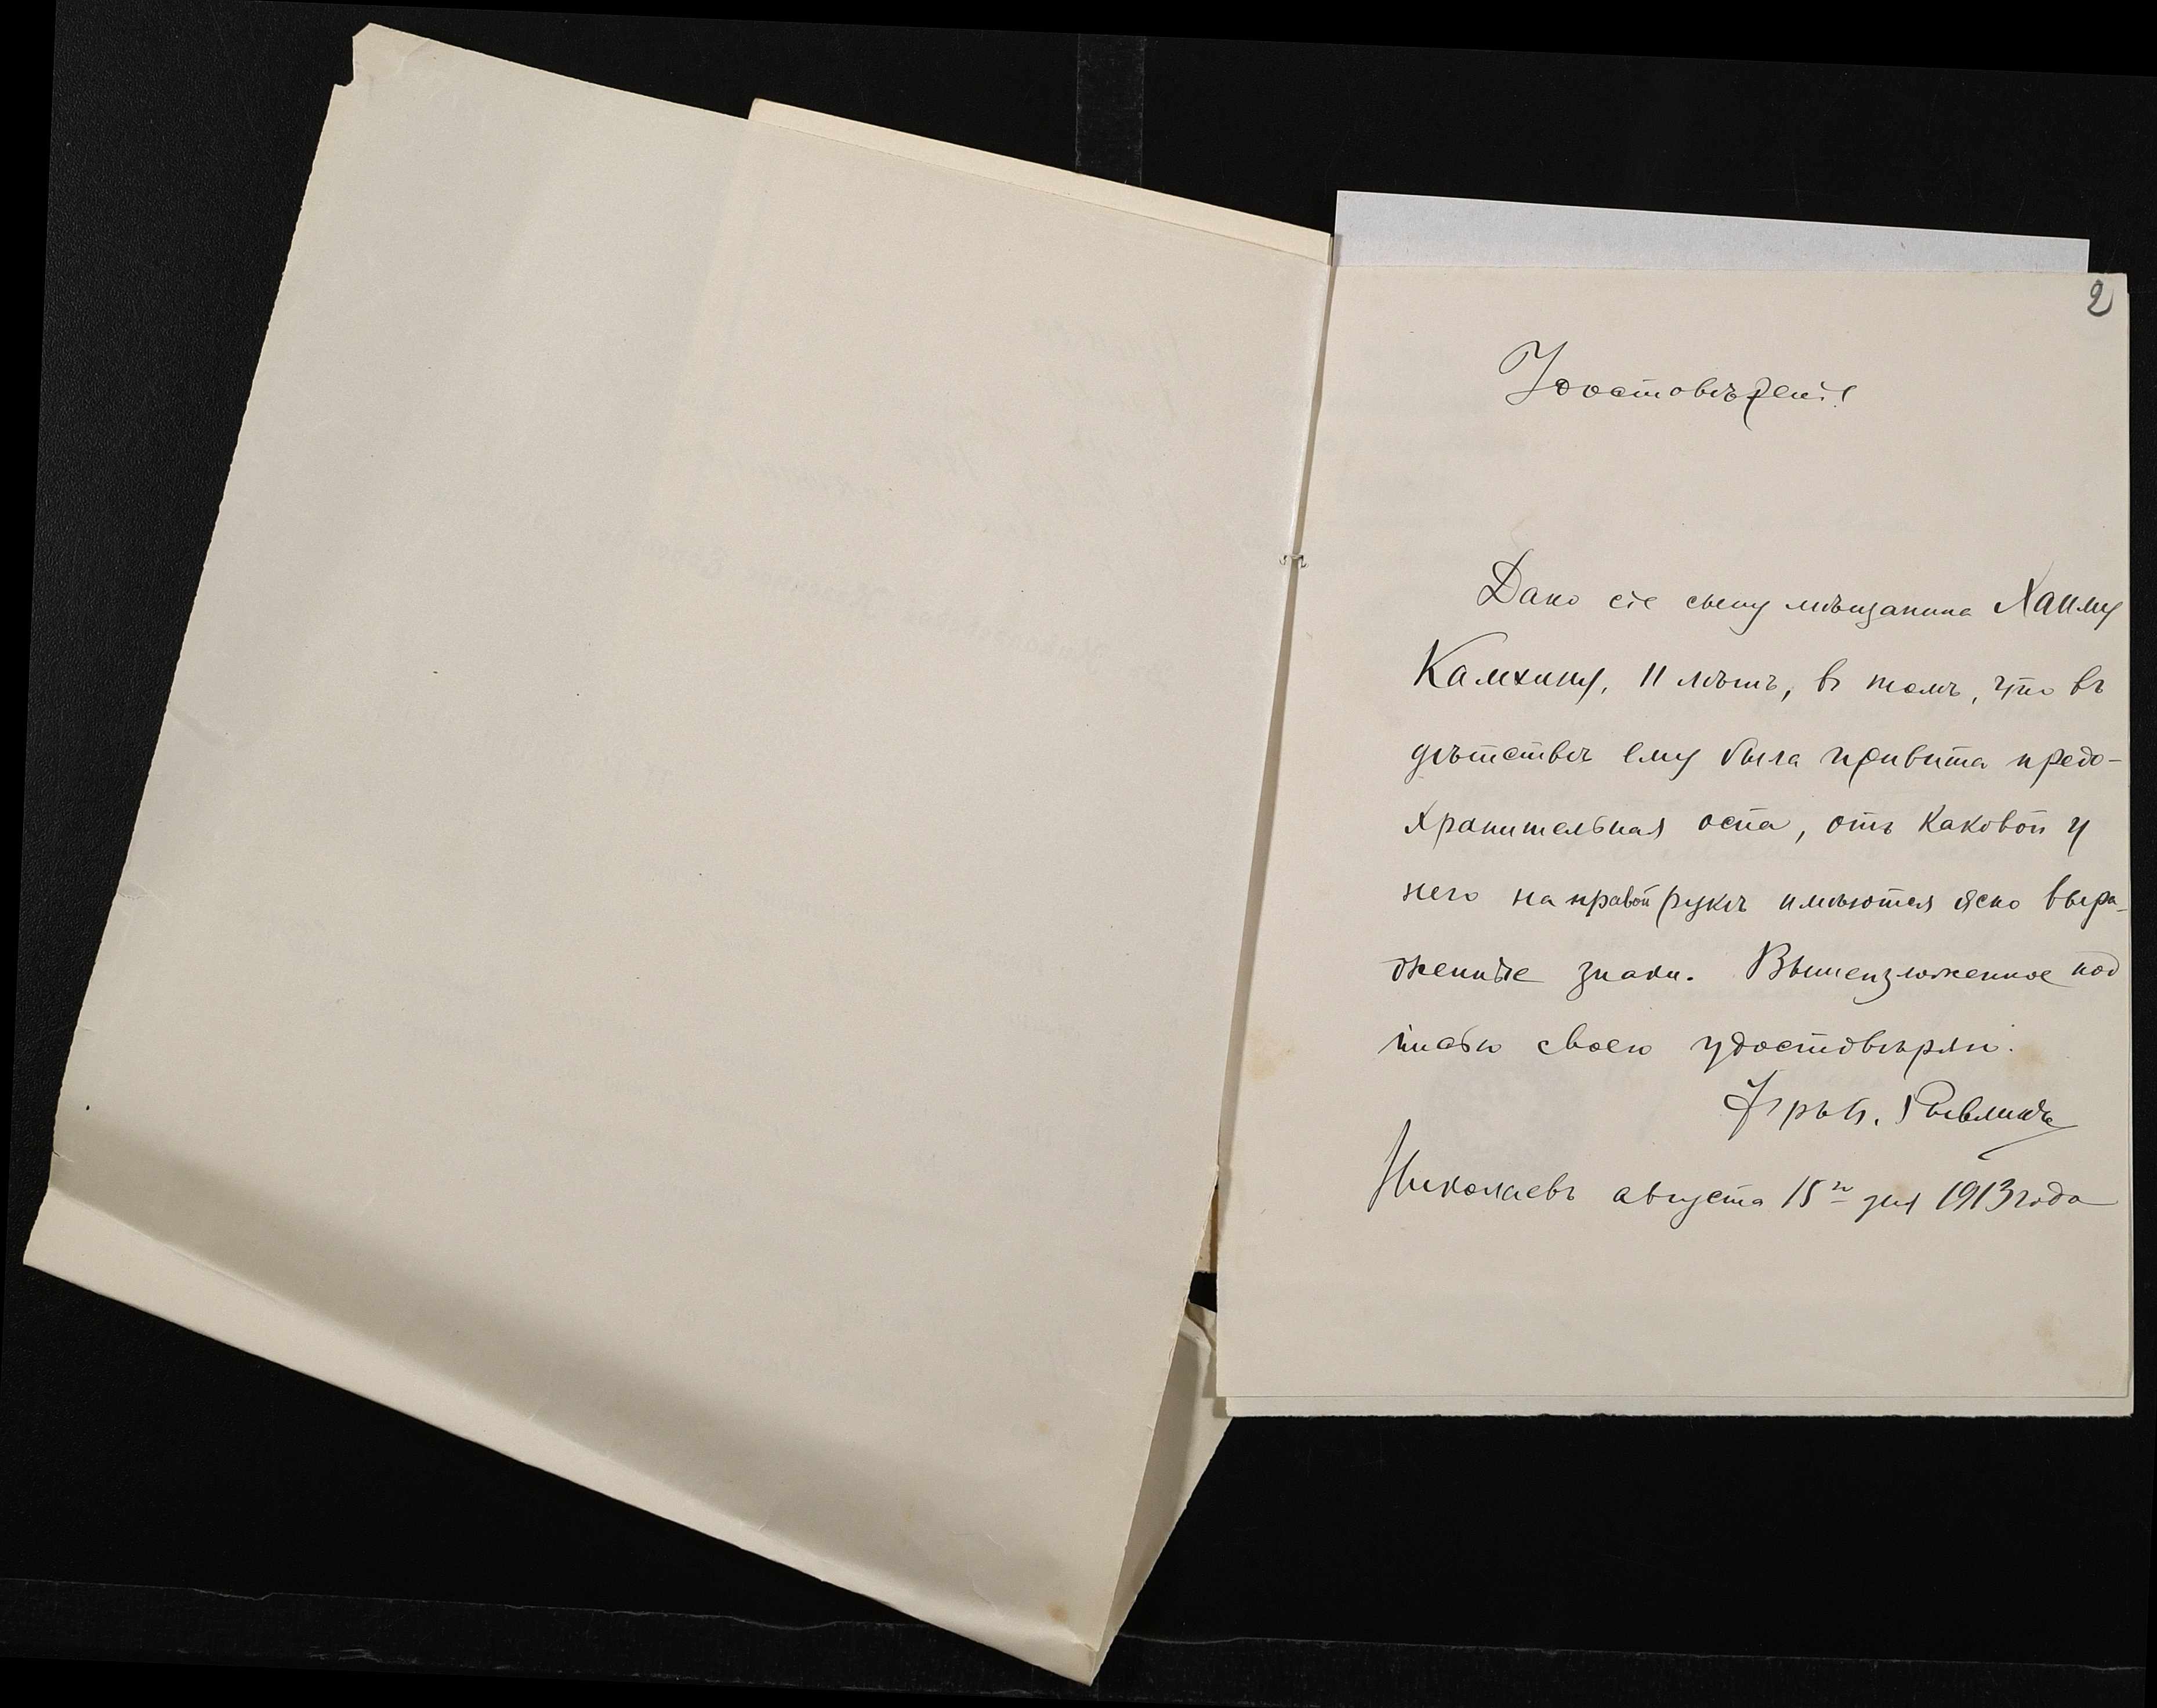 2
Удостовѣреніе
Дано сіе сыну мѣщанина Хаиму
Камхину, 11 лѣтъ, въ томъ, что въ
дѣтствѣ ему была привита предо-
хранительная оспа, отъ каковой у
него на правой рукѣ имѣются ясно выра-
женные знаки. Вышеизложенное под
писью своею удостовѣряю.
Николаевъ августа 15го дня 1913 года